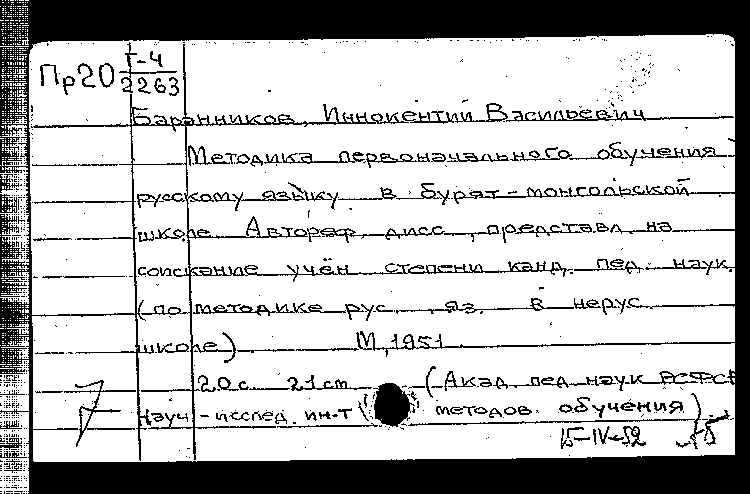 Пр20 Г-4
2263
Баранников, Иннокентий Васильевич
Методика первоначального обучения
русскому языку в бурят-монгольской
школе. Автореф. дисс., представл. на
соискание учён. степени канд. пед. наук.
(по методике рус. яз. в нерус.
школе). М., 1951.
20 с. 21 cm (Акад. пед. наук РСФСР
Науч-исслед. ин-т методов обучения).
15-IV-52